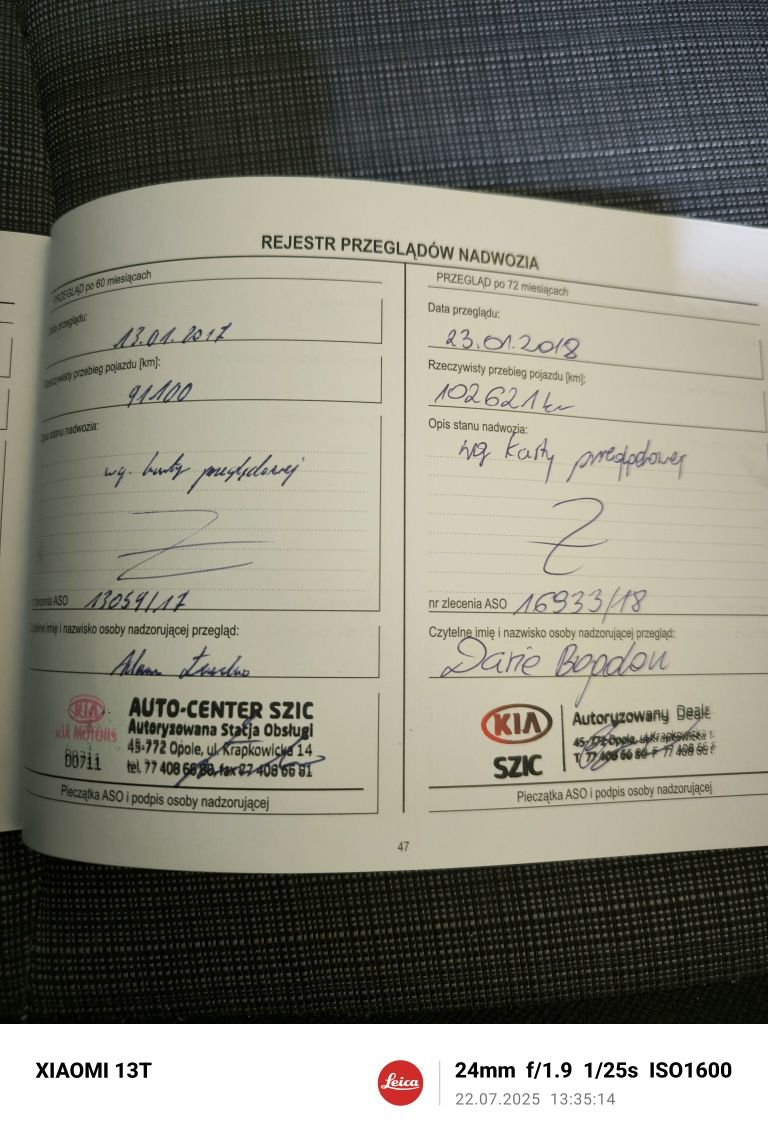 REJESTR PRZEGLĄDÓW NADWOZIA
PRZEGLĄD po 60 miesiącach
Data przeglądu:
13.01.2017
Rzeczywisty przebieg pojazdu [km]:
91100
Opis stanu nadwozia:
wg. karty przeglądowej
nr zlecenia ASO 13059/17
Czytelne imię i nazwisko osoby nadzorującej przegląd:
Adam
KIA
KIA MOTORS
B0711
AUTO-CENTER SZIC
Autoryzowana Stacja Obsługi
45-772 Opole, ul. Krapkowicka 14
tel. 77 408 66 80, fax 77 408 66 81
Pieczątka ASO i podpis osoby nadzorującej
PRZEGLĄD po 72 miesiącach
Data przeglądu:
23.01.2018
Rzeczywisty przebieg pojazdu [km]:
102621 km
Opis stanu nadwozia:
wg karty przeglądowej
nr zlecenia ASO 16933/18
Czytelne imię i nazwisko osoby nadzorującej przegląd:
Darie Bogdan
KIA
SZIC
Autoryzowany Dealer
45-772 Opole, ul. Krapkowicka
T 77 408 66 80 F 77 408 66
Pieczątka ASO i podpis osoby nadzorującej
47
XIAOMI 13T
Leica
24mm f/1.9 1/25s ISO1600
22.07.2025 13:35:14